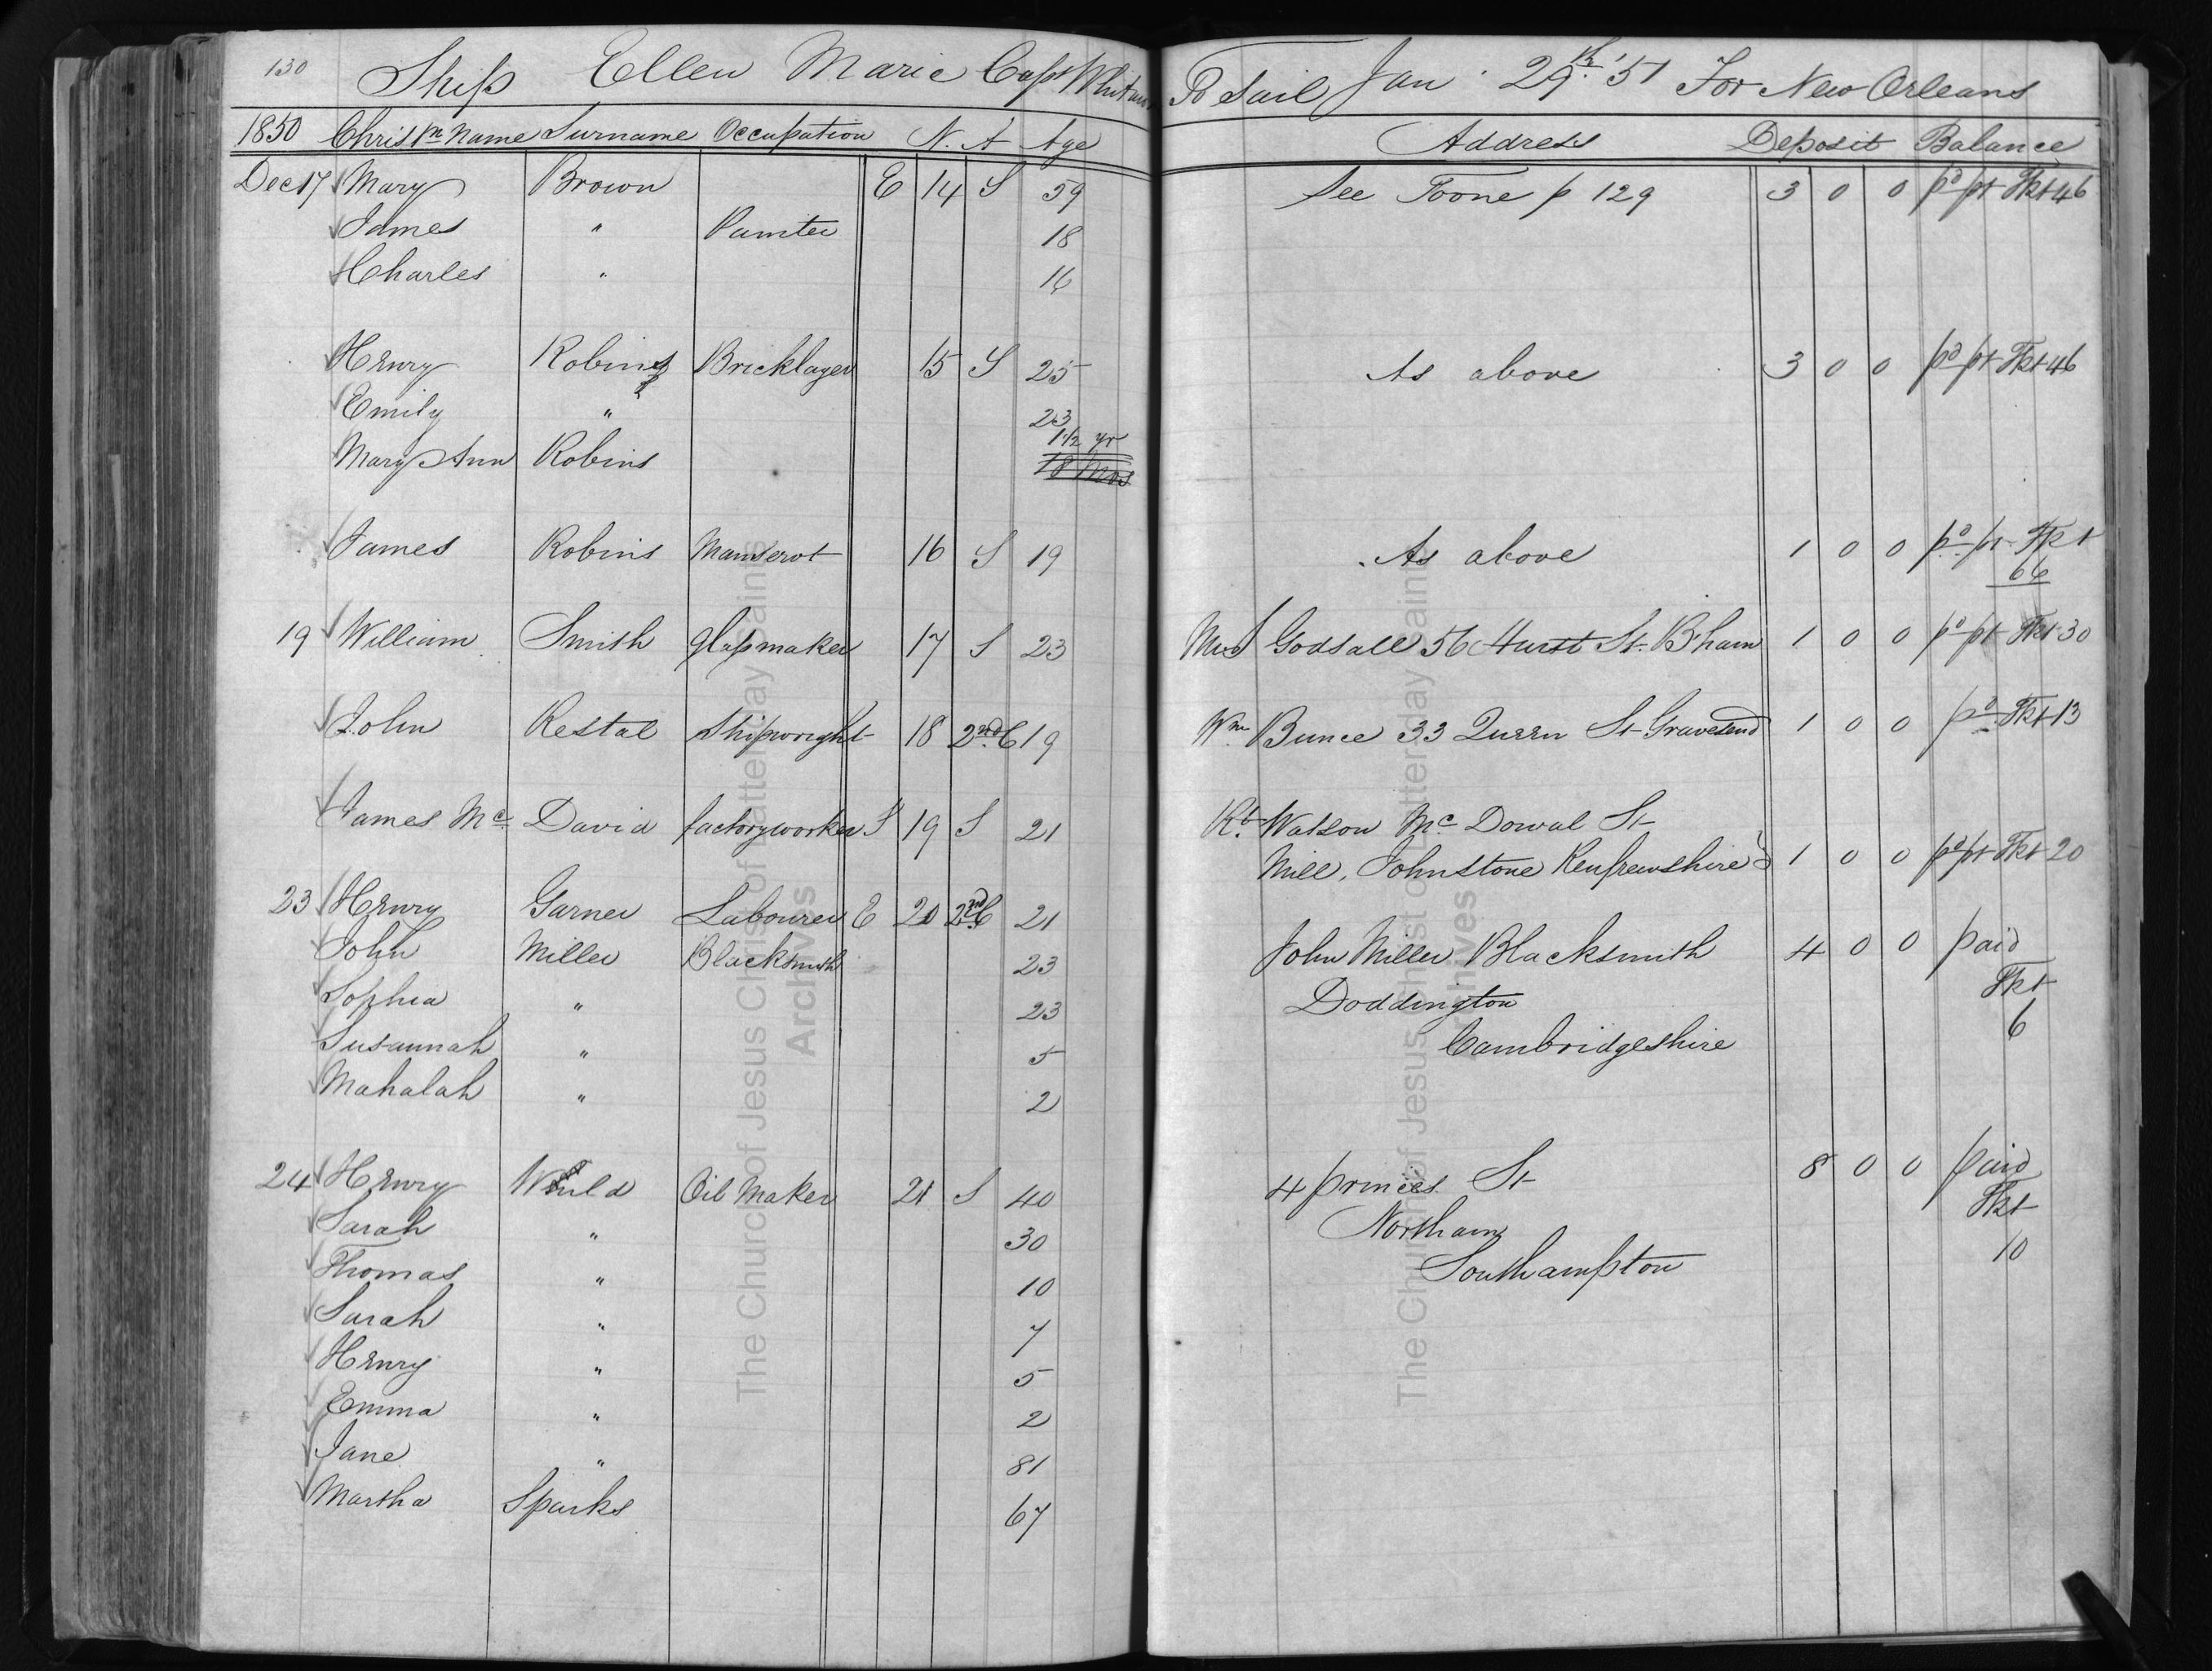 130 Ship Ellen Marie Capt To Sail Jan 29th '51 For New Orleans
1850 Christn Name Surname Occupation N. A Age Address Deposit Balance
Dec 17 Mary Brown E 14 S 59 See Toone p 129 3 0 0 pd pt Tkt 46
James " Painter 18
Charles " 16
Henry Robins Bricklayer 15 S 25 As above 3 0 0 pd pt Tkt 46
Emily " 23
1 1/2 yr
Mary Ann Robins 18 Mos
James Robins Manservt 16 S 19 As above 1 0 0 pd pt Tkt
66
19 William Smith glassmaker 17 S 23 Godsall 56 Hurst St. B'ham 1 0 0 pd pt Tkt 30
John Restal Shipwright 18 2nd C 19 Wm Bunce 33 Queen St Gravesend 1 0 0 pd Tkt 13
James Mc David factoryworker S 19 S 21 Rt Watson Mc Dowal St
Mill, Johnstone Renfrewshire 1 0 0 pd pt Tkt 20
23 Henry Garner Labourer E 20 2nd C 21
John Miller Blacksmith 23 John Miller Blacksmith 4 0 0 paid
Sophia " 23 Doddington Tkt
Susannah " 5 Cambridgeshire 6
Mahalah " 2
24 Henry Oil Maker 21 S 40 4 princes St 8 0 0 paid
Sarah " 30 Northam Tkt
Thomas " 10 Southampton 10
Sarah " 7
Henry " 5
Emma " 2
Jane " 81
Martha Sparks 67
The Church of Jesus Christ of Latter-day Saints
Archives
The Church of Jesus Christ of Latter-day Saints
Archives